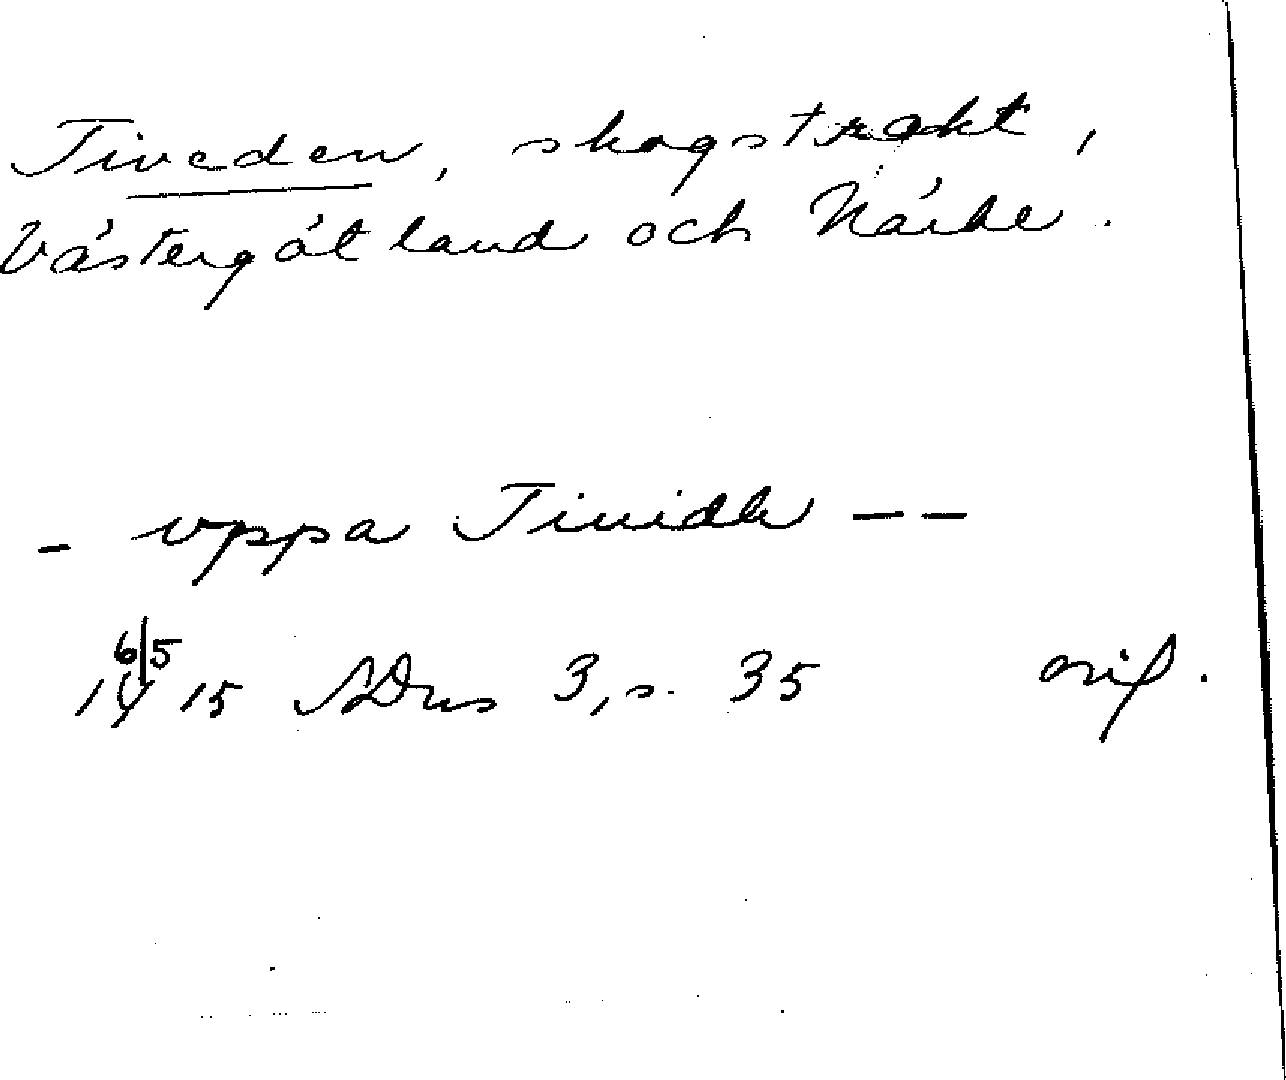 Tiveden, skogstrakt,
Västergötland och Närke.
- uppa Tiuidh --
6/5
14/ 15 SDns 3, s. 35 orig.